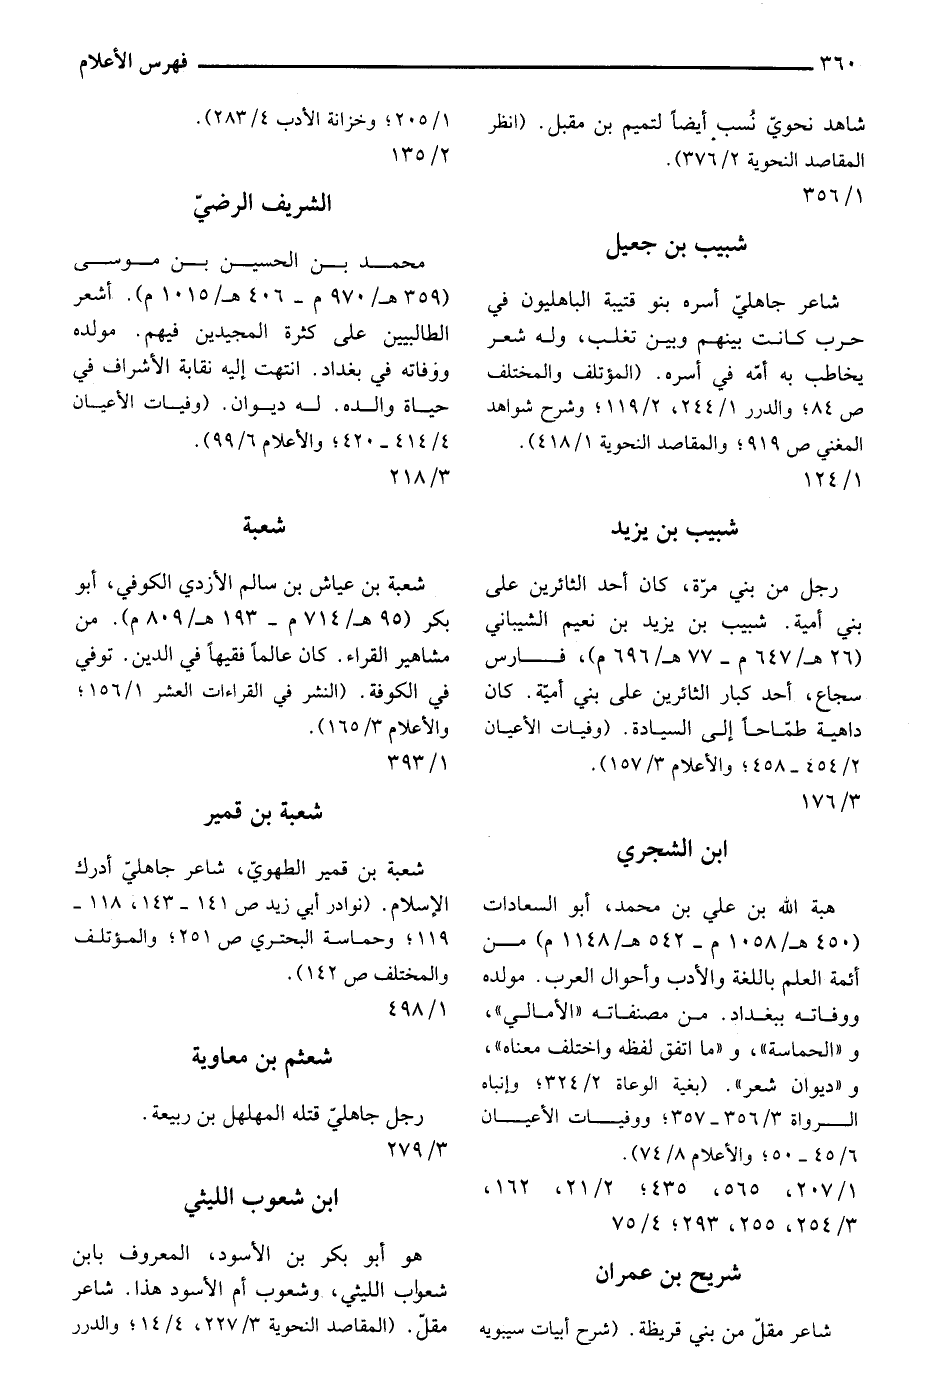 ٣٦٠ فهرس الأعلام
شاهد نحويّ نُسب أيضاً لتميم بن مقبل. (انظر
المقاصد النحوية ٣٧٦/٢).
٣٥٦/١
شبيب بن جعيل
شاعر جاهليّ أسره بنو قتيبة الباهليون في
حرب كانت بينهم وبين تغلب، وله شعر
يخاطب به أمّه في أسره. (المؤتلف والمختلف
ص ٨٤؛ والدرر ٢٤٤/١، ١١٩/٢؛ وشرح شواهد
المغني ص ٩١٩؛ والمقاصد النحوية ٤١٨/١).
١٢٤/١
شبيب بن يزيد
رجل من بني مرّة، كان أحد الثائرين على
بني أمية. شبيب بن يزيد بن نعيم الشيباني
(٢٦ هـ/٦٤٧ م ـ ٧٧ هـ/٦٩٦ م)، فارس
سجاع، أحد كبار الثائرين على بني أميّة. كان
داهية طمّاحاً إلى السيادة. (وفيات الأعيان
٤٥٤/٢ ـ ٤٥٨؛ والأعلام ١٥٧/٣).
١٧٦/٣
ابن الشجري
هبة الله بن علي بن محمد، أبو السعادات
(٤٥٠ هـ/١٠٥٨ م ـ ٥٤٢ هـ/١١٤٨ م) من
أئمة العلم باللغة والأدب وأحوال العرب. مولده
ووفاته ببغداد. من مصنفاته «الأمالي»،
و «الحماسة»، و «ما اتفق لفظه واختلف معناه»،
و «ديوان شعر». (بغية الوعاة ٣٢٤/٢؛ وإنباه
الرواة ٣٥٦/٣ ـ ٣٥٧؛ ووفيات الأعيان
٤٥/٦ ـ ٥٠؛ والأعلام ٧٤/٨).
٢٠٧/١، ٥٦٥، ٤٣٥؛ ٢١/٢، ١٦٢،
٢٥٤/٣، ٢٥٥، ٢٩٣؛ ٧٥/٤
شريح بن عمران
شاعر مقلّ من بني قريظة. (شرح أبيات سيبويه
٢٠٥/١؛ وخزانة الأدب ٢٨٣/٤).
١٣٥/٢
الشريف الرضيّ
محمد بن الحسين بن موسى
(٣٥٩ هـ/٩٧٠ م ـ ٤٠٦ هـ/١٠١٥ م). أشعر
الطالبيين على كثرة المجيدين فيهم. مولده
ووفاته في بغداد. انتهت إليه نقابة الأشراف في
حياة والده. له ديوان. (وفيات الأعيان
٤١٤/٤ ـ ٤٢٠؛ والأعلام ٩٩/٦).
٢١٨/٣
شعبة
شعبة بن عياش بن سالم الأزدي الكوفي، أبو
بكر (٩٥ هـ/٧١٤ م ـ ١٩٣ هـ/٨٠٩ م). من
مشاهير القراء. كان عالماً فقيهاً في الدين. توفي
في الكوفة. (النشر في القراءات العشر ١٥٦/١؛
والأعلام ١٦٥/٣).
٣٩٣/١
شعبة بن قمير
شعبة بن قمير الطهويّ، شاعر جاهليّ أدرك
الإسلام. (نوادر أبي زيد ص ١٤١ ـ ١٤٣، ١١٨ ـ
١١٩؛ وحماسة البحتري ص ٢٥١؛ والمؤتلف
والمختلف ص ١٤٢).
٤٩٨/١
شعثم بن معاوية
رجل جاهليّ قتله المهلهل بن ربيعة.
٢٧٩/٣
ابن شعوب الليثي
هو أبو بكر بن الأسود، المعروف بابن
شعواب الليثي، وشعوب أم الأسود هذا. شاعر
مقلّ. (المقاصد النحوية ٢٢٧/٣، ١٤/٤؛ والدرر